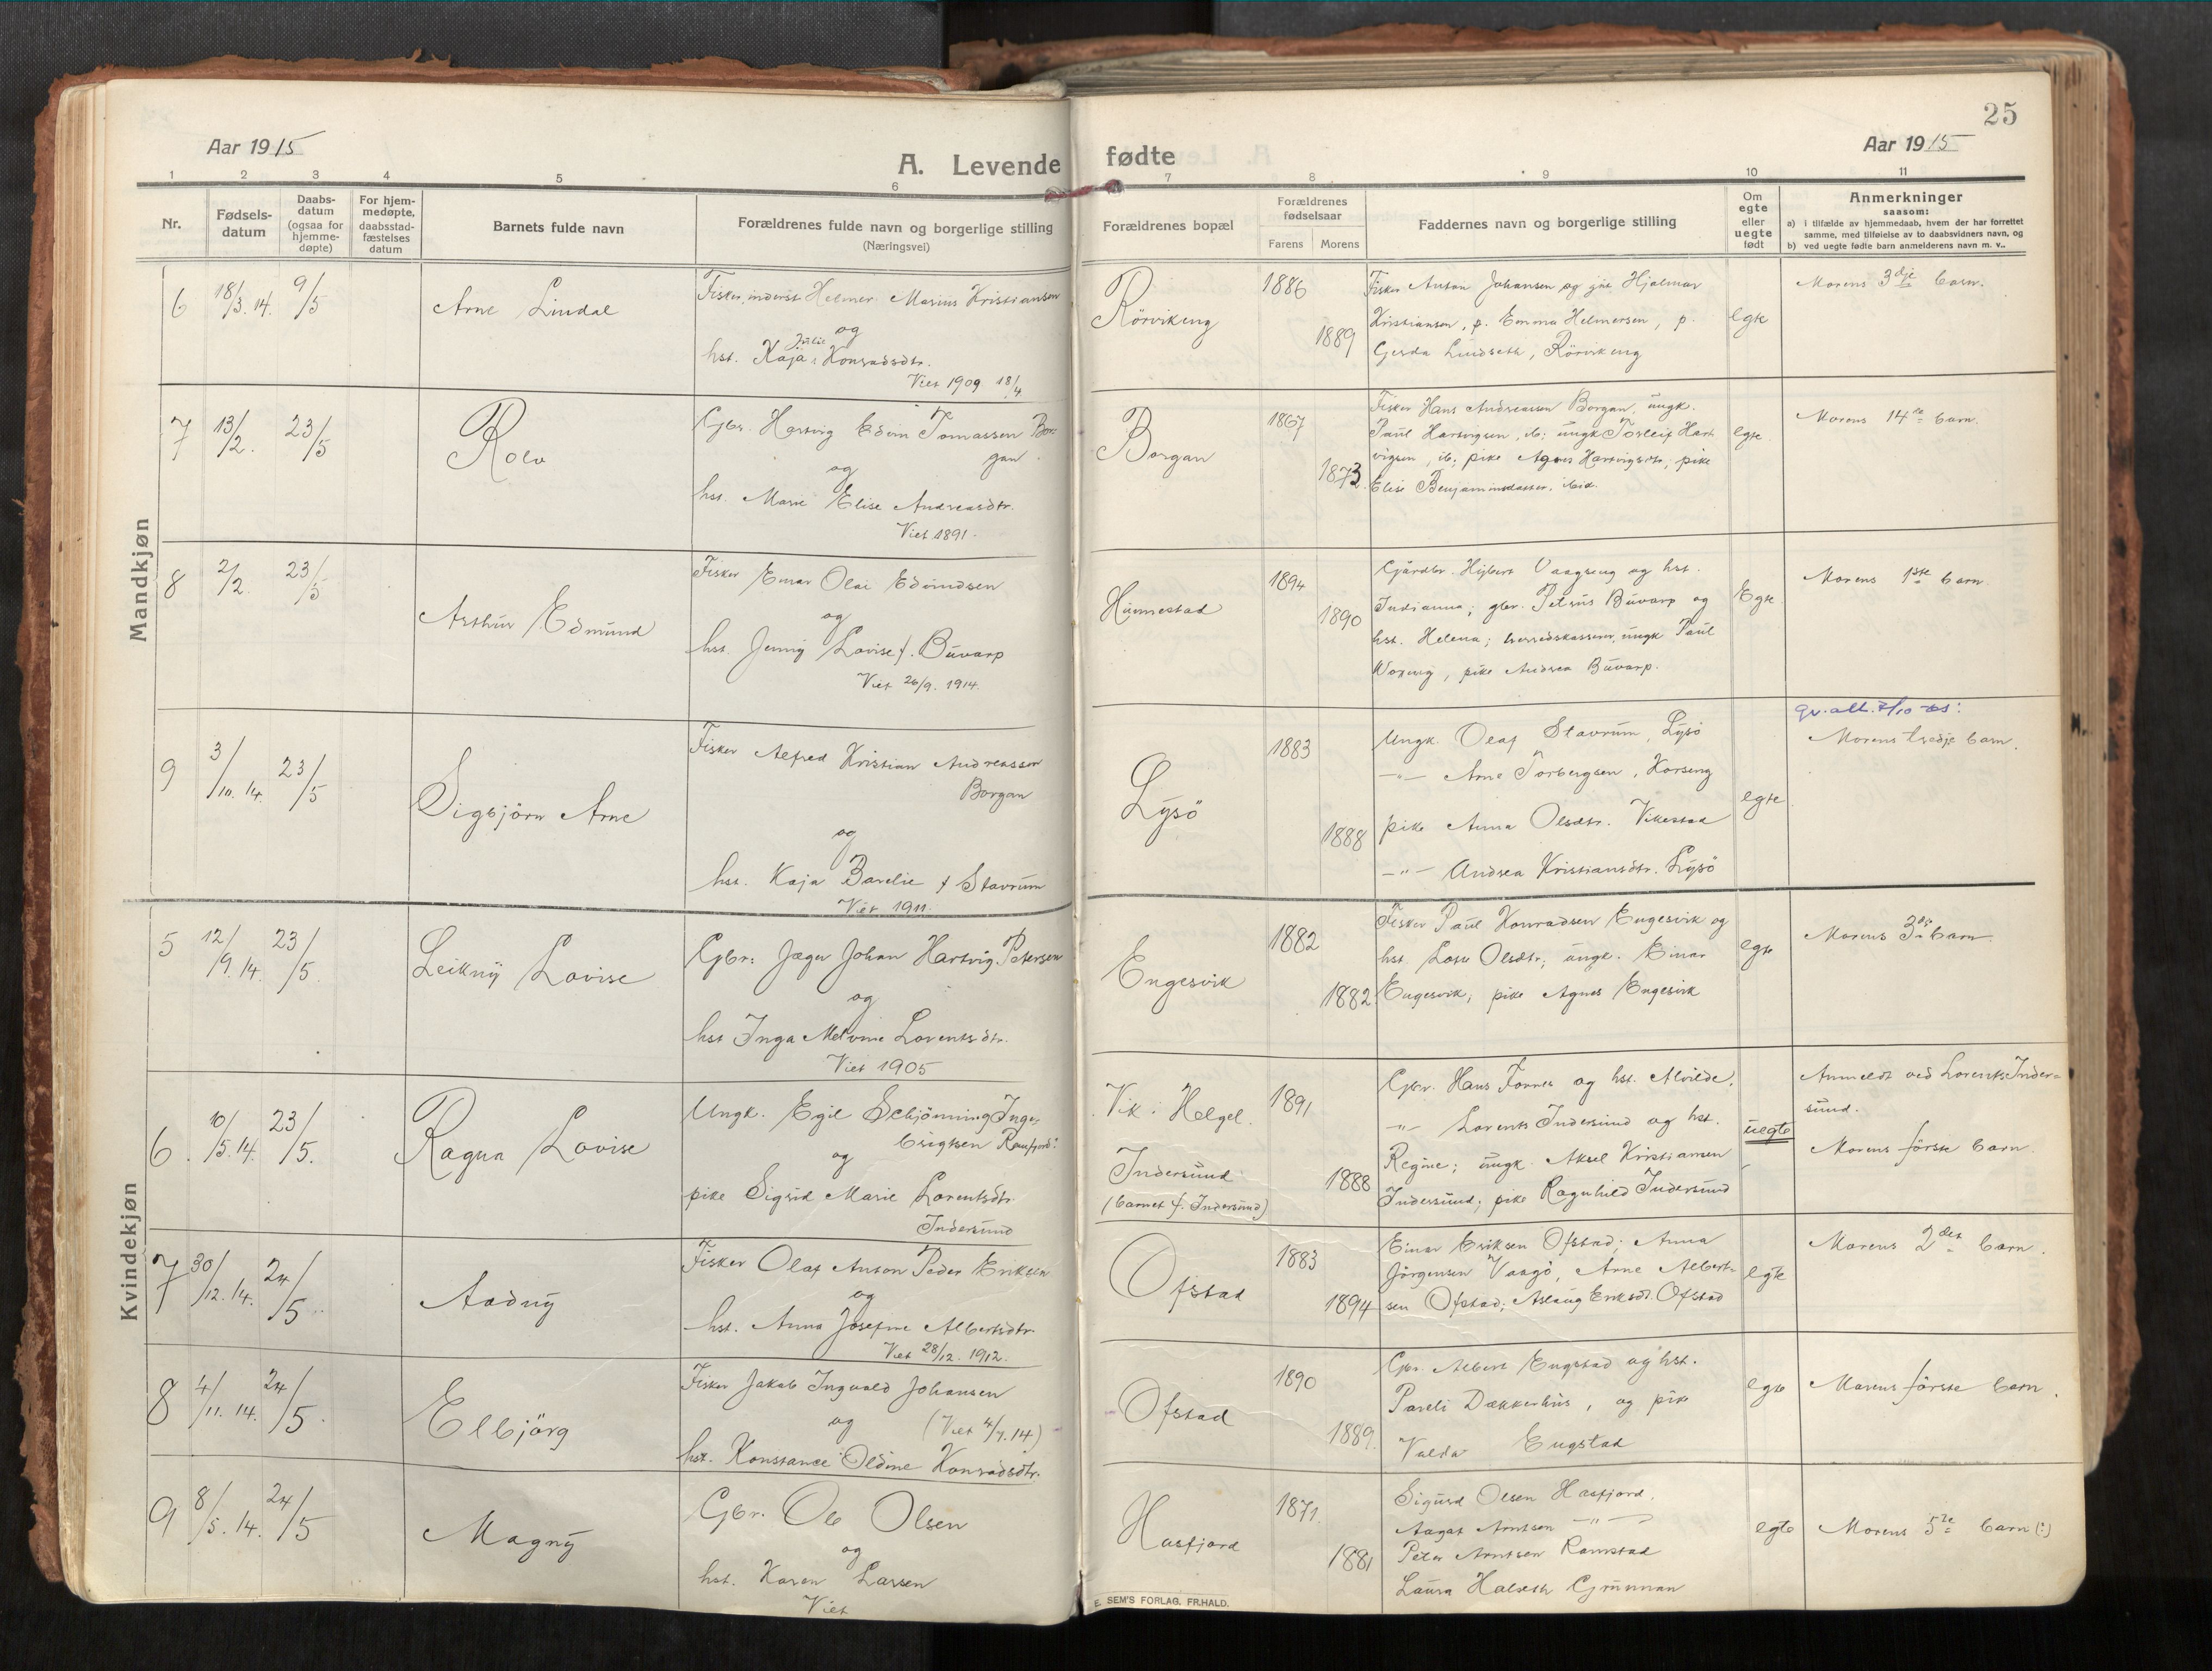 25
Aar 1915
A. Levende
fødte
Aar 1915
1 2 3 4 5 6
7 8 9 10 11
Nr.
Fødsels-
datum
Daabs-
datum
(ogsaa for
hjemme-
døpte)
For hjem-
medøpte,
daabsstad-
fæstelses
datum
Barnets fulde navn
Forældrenes fulde navn og borgerlige stilling
(Næringsvei)
Forældrenes bopæl
Forældrenes
fødselsaar
Farens Morens
Faddernes navn og borgerlige stilling
Om
egte
eller
uegte
født
Anmerkninger
saasom:
a) i tilfælde av hjemmedaab, hvem der har forrettet
samme, med tilføielse av to daabsvidners navn, og
b) ved uegte fødte barn anmelderens navn m. v..
Mandkjøn
6 18/3. 14. 9/5 Arne Lindal
Fisker, inderst Helmer Marius Kristiansen
og
hst. Kaja Julie Konradsdtr.
Viet 1909 18/4
Rörvikeng
1886
1889
Fisker Anton Johansen og Hjalmar
Kristiansen, p. Emma Helmersen, p.
Gerda Lindseth, Rörvikeng
egte
Morens 3dje barn.
7 13/2. 23/5 Rolv
Gbr. Hartvig Edvin Tomassen Bor-
gan
og
hst. Marie Elise Andreasdtr.
Viet 1891.
Borgan
1867
1873.
Fisker Hans Andreassen Borgan, ungk.
Paul Hartvigsen, ib; ungk Torleif Hart
vigsen, ib; pike Agnes Hartvigsdtr, pike
Elise Benjaminsdatter, ibid.
egte.
Morens 14de barn.
8 2/2. 23/5 Arthur Edmund
Fisker Einar Olai Edvindsen
og
hst. Jenny Lovise f. Buvarp
Viet 26/9. 1914.
Hunnestad
1894
1890
Gårdbr. Hijbert Vaagseng og hst.
Indianna; gbr. Petrus Buvarp og
hst. Helena; herredskasserer, ungk Paul
Woxeng, pike Andrea Buvarp.
Egte.
Morens 1ste barn.
9 3/10. 14. 23/5 Sigbjörn Arne
Fisker Alfred Kristian Andreassen
Borgan
og
hst. Kaja Barelie f Stavrum
Viet 1911.
Lysö
1883
1888
Ungk. Olaf Stavrum, Lysö
-"- Arne Torbergsen, Horseng
pike Anna Olsdtr. Vikestad
-"- Andrea Kristiansdtr. Lysö
egte.
Morens tredje barn.
Kvindekjøn
5 12/9. 14. 23/5. Leikny Lovise
Gbr: Jæger Johan Hartvig Petersen
og
hst Inga Melvine Lorentsdtr.
Viet 1905
Engesvik
1882
1882.
Fisker Paul Konradsen Engesvik og
hst. Lote Olsdtr; ungk. Einar
Engesvik; pike Agnes Engesvik
egte
Morens 3dje barn.
6. 10/5. 14. 23/5. Ragna Lovise
Ungk. Egil Schjönning Inge-
brigtsen Ranfjord:
og
pike Sigrid Marie Lorentsdtr
Indersund
Vik i Helgel.
Indersund
(barnet f. Indersund)
1891
1888
Gbr. Hans Forner og hst. Alvilde,
-"- Lorents Indersund og hst.
Regine; ungk. Aksel Kristiansen
Indersund; pike Ragnhild Indersund
uegte
Anmeldt ved Lorents Inder-
sund.
Morens förste barn.
7 30/12. 14. 24/5. Aadny
Fisker Olaf Anton Peder Eriksen
og
hst. Anna Josefine Albertsdtr.
Viet 28/12. 1912.
Ofstad
1883
1894
Einar Eriksen Ofstad; Anna
Jörgensen Vaagö, Arne Albert-
sen Ofstad; Aslaug Eriksdt. Ofstad
egte
Morens 2det barn.
8 4/11. 14. 24/5. Elbjörg
Fisker Jakob Ingvald Johansen
og (Viet 4/7. 14)
hst. Konstance Oldine Konradsdtr.
Ofstad
1890
1889.
Gbr. Albert Engstad og hst.
Pareli Dækkerhus, og pike
Valda Engstad
egte
Morens förste barn.
9 8/5. 14. 24/5 Magny
Gbr. Ole Olsen
og
hst. Karen Larsen
Viet
Hasfjord
1871.
1881
Sigurd Olsen Hasfjord.
Aagat Arntsen -"-
Peter Arntsen Ramstad
Laura Halseth Grunnan
egte
Morens 5te barn (!)
E. SEM'S FORLAG. FR.HALD.